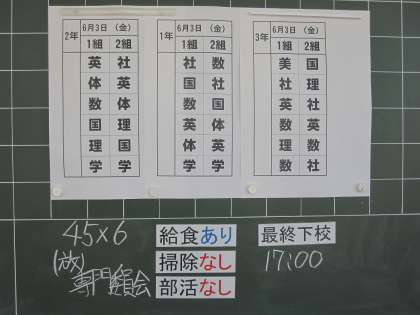 2年
6月3日 (金)
1組 2組
英 社
体 英
数 体
国 理
理 国
学 学
1年
6月3日 (金)
1組 2組
社 数
国 社
数 国
英 体
体 英
学 学
3年
6月3日 (金)
1組 2組
美 国
社 理
英 社
数 英
理 数
数 社
45×6
(放)
専門委員会
給食あり
掃除なし
部活なし
最終下校
17:00